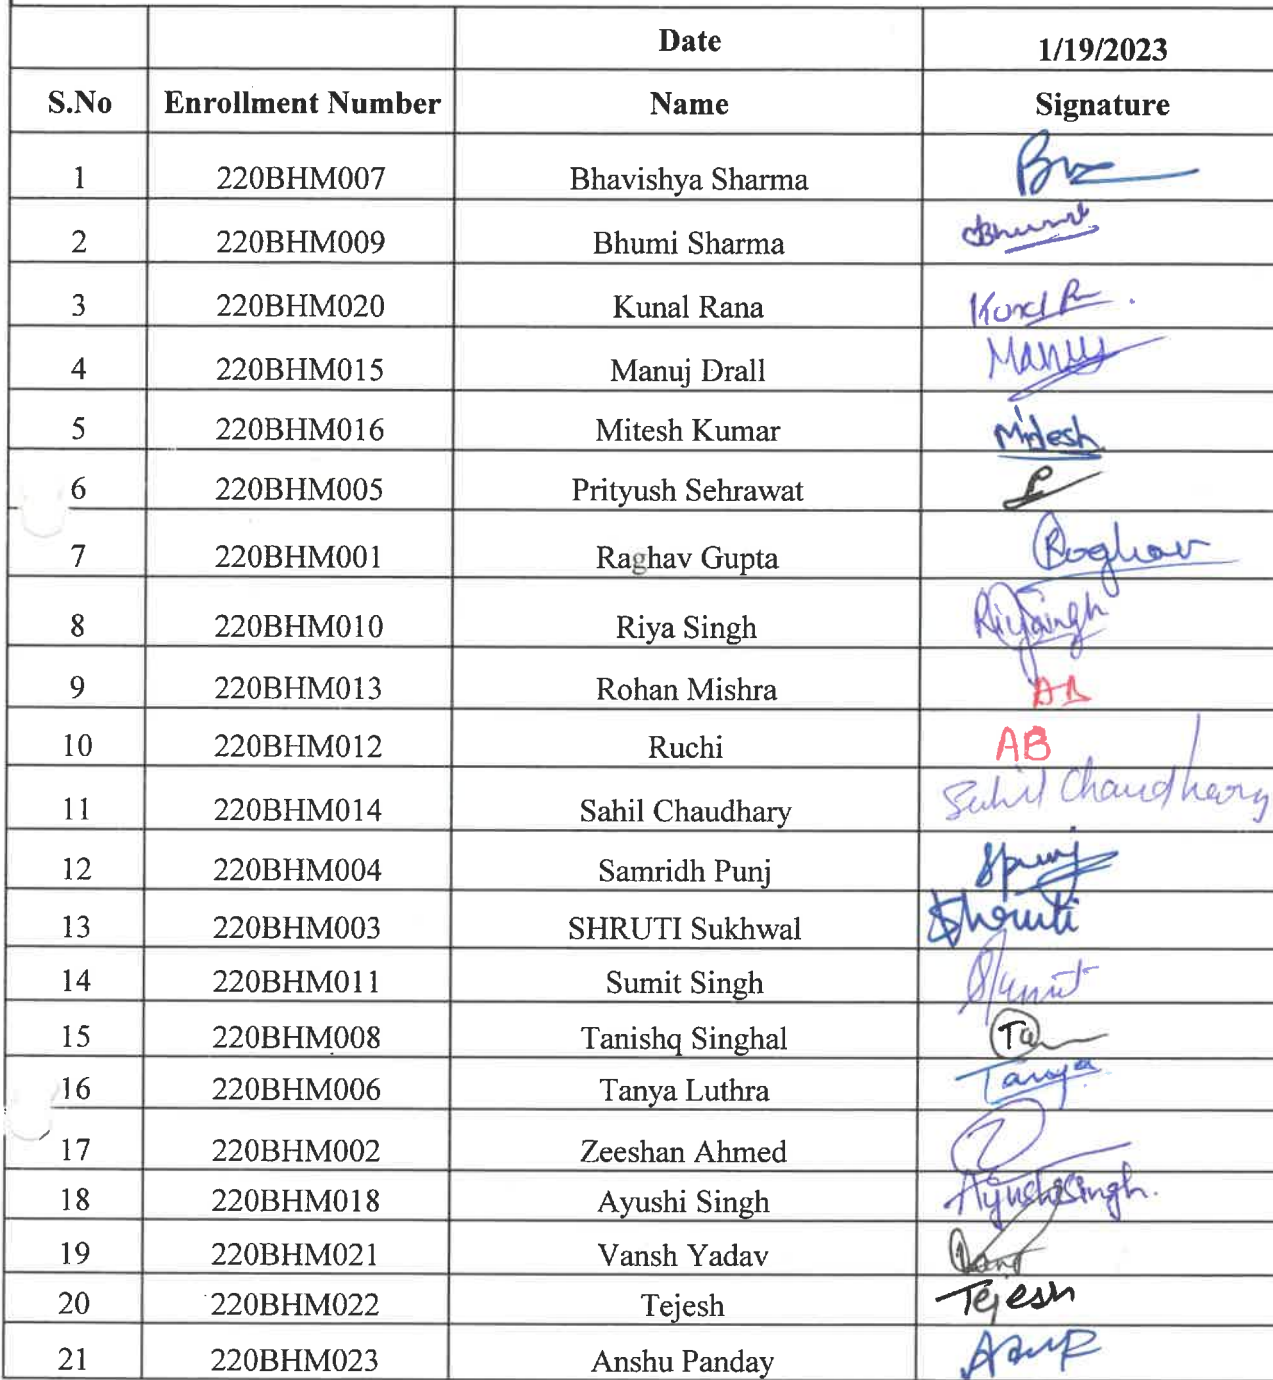 Date 1/19/2023
S.No Enrollment Number Name Signature
1 220BHM007 Bhavishya Sharma
2 220BHM009 Bhumi Sharma Bhumi
3 220BHM020 Kunal Rana
4 220BHM015 Manuj Drall Manuj
5 220BHM016 Mitesh Kumar Mitesh
6 220BHM005 Prityush Sehrawat
7 220BHM001 Raghav Gupta Raghav
8 220BHM010 Riya Singh Riya Singh
9 220BHM013 Rohan Mishra AB
10 220BHM012 Ruchi AB
11 220BHM014 Sahil Chaudhary Sahil Chaudhary
12 220BHM004 Samridh Punj Spunj
13 220BHM003 SHRUTI Sukhwal Shruti
14 220BHM011 Sumit Singh Sumit
15 220BHM008 Tanishq Singhal Ta
16 220BHM006 Tanya Luthra Tanya
17 220BHM002 Zeeshan Ahmed
18 220BHM018 Ayushi Singh Ayushi Singh.
19 220BHM021 Vansh Yadav
20 220BHM022 Tejesh Tejesh
21 220BHM023 Anshu Panday